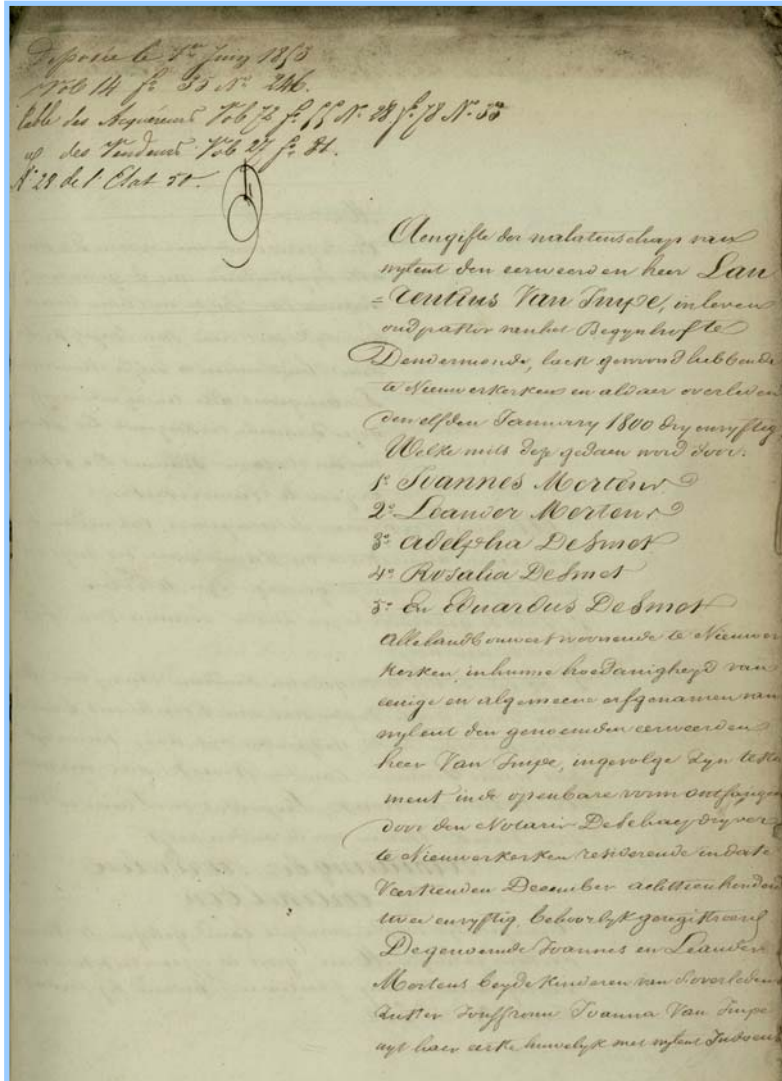 Déposée le 1er Juny 1853
Vol 14 fo 35 No 246.
table des Acquéreurs Vol 72 fo 55 No 28 fo 78 No 50
des Vendeurs Vol 27 fo 81.
No 28 de l'Etat 50.
Aengifte der nalatenschap van
wylent den eerweerden heer Lau
=rentius Van Impe, in leven
oud pastor van het Begynhof te
Dendermonde, laest gewoond hebbende
te Nieuwerkerken en aldaer overleden
den elfden January 1800 dry envyftig
Welke mits deze gedaen word door:
1o Joannes Mertens
2o Leander Mertens
3o Adelphia DeSmet
4o Rosalia DeSmet
5o En Eduardus DeSmet
alle landbouwers woonende te Nieuwer
kerken, in hunne hoedanigheyd van
eenige en algemeene erfgenamen van
wylent den genoemden eerweerden
heer Van Impe, ingevolge zyn testa
ment in de openbare vorm ontfangen
door den Notaris
te Nieuwerkerken residerende in date
Veertienden December achttien honderd
twee envyftig, behoorlyk geregistreerd
De genoemde Joannes en Leander
Mertens beyde kinderen van d'overledens
zuster Jouffrouw Joanna Van Impe
uyt haer eerste huwelyk met wylent